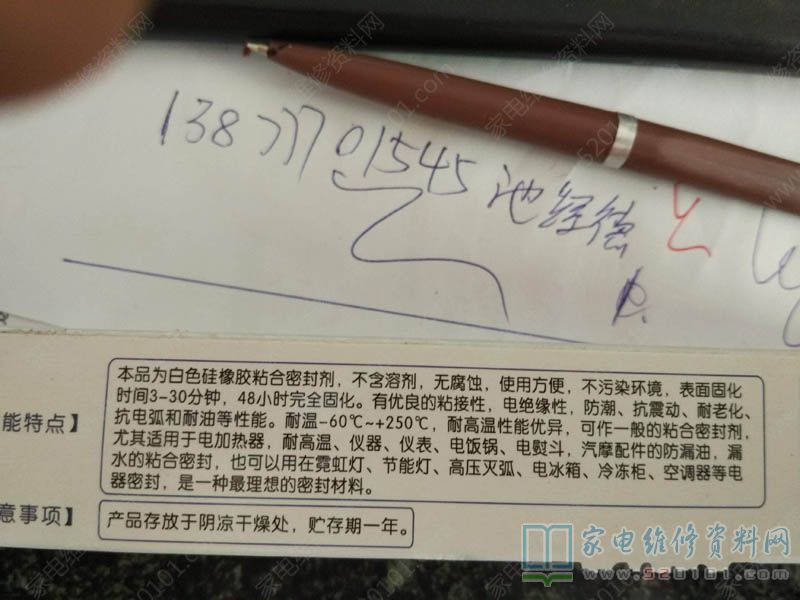 13877701545 池经德
本品为白色硅橡胶粘合密封剂，不含溶剂，无腐蚀，使用方便，不污染环境，表面固化
时间3-30分钟，48小时完全固化。有优良的粘接性，电绝缘性，防潮、抗震动、耐老化、
能特点】
抗电弧和耐油等性能。耐温-60℃~+250℃，耐高温性能优异，可作一般的粘合密封剂，
尤其适用于电加热器，耐高温、仪器、仪表、电饭锅、电熨斗，汽摩配件的防漏油，漏
水的粘合密封，也可以用在霓虹灯、节能灯、高压灭弧、电冰箱、冷冻柜、空调器等电
器密封，是一种最理想的密封材料。
意事项】
产品存放于阴凉干燥处，贮存期一年。
家电维修资料网
www.520101.com